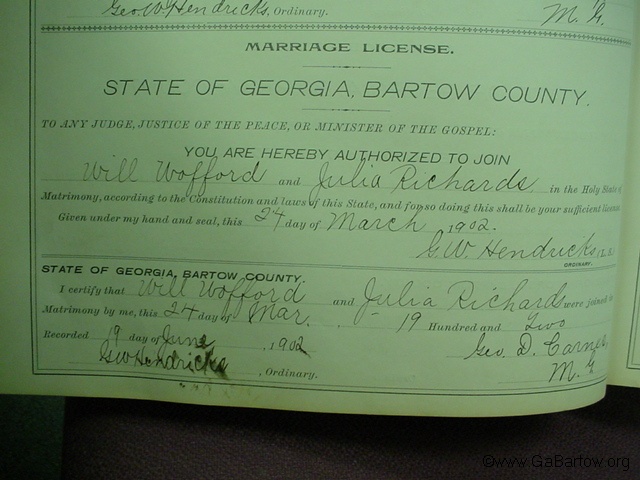 Geo. W. Hendricks, Ordinary. M. G.
MARRIAGE LICENSE.
STATE OF GEORGIA, BARTOW COUNTY.
TO ANY JUDGE, JUSTICE OF THE PEACE, OR MINISTER OF THE GOSPEL:
YOU ARE HEREBY AUTHORIZED TO JOIN
Will Wofford and Julia Richards in the Holy State of
Matrimony, according to the Constitution and laws of this State, and for so doing this shall be your sufficient license
Given under my hand and seal, this 24 day of March 1902.
G. W. Hendricks (L. S.)
ORDINARY.
STATE OF GEORGIA, BARTOW COUNTY.
I certify that Will Wofford and Julia Richards were joined in
Matrimony by me, this 24 day of Mar. 19 Hundred and Two
Recorded 19 day of June, 1902 Geo. D. Carner
GW Hendricks, Ordinary. M. G
©www.GaBartow.org